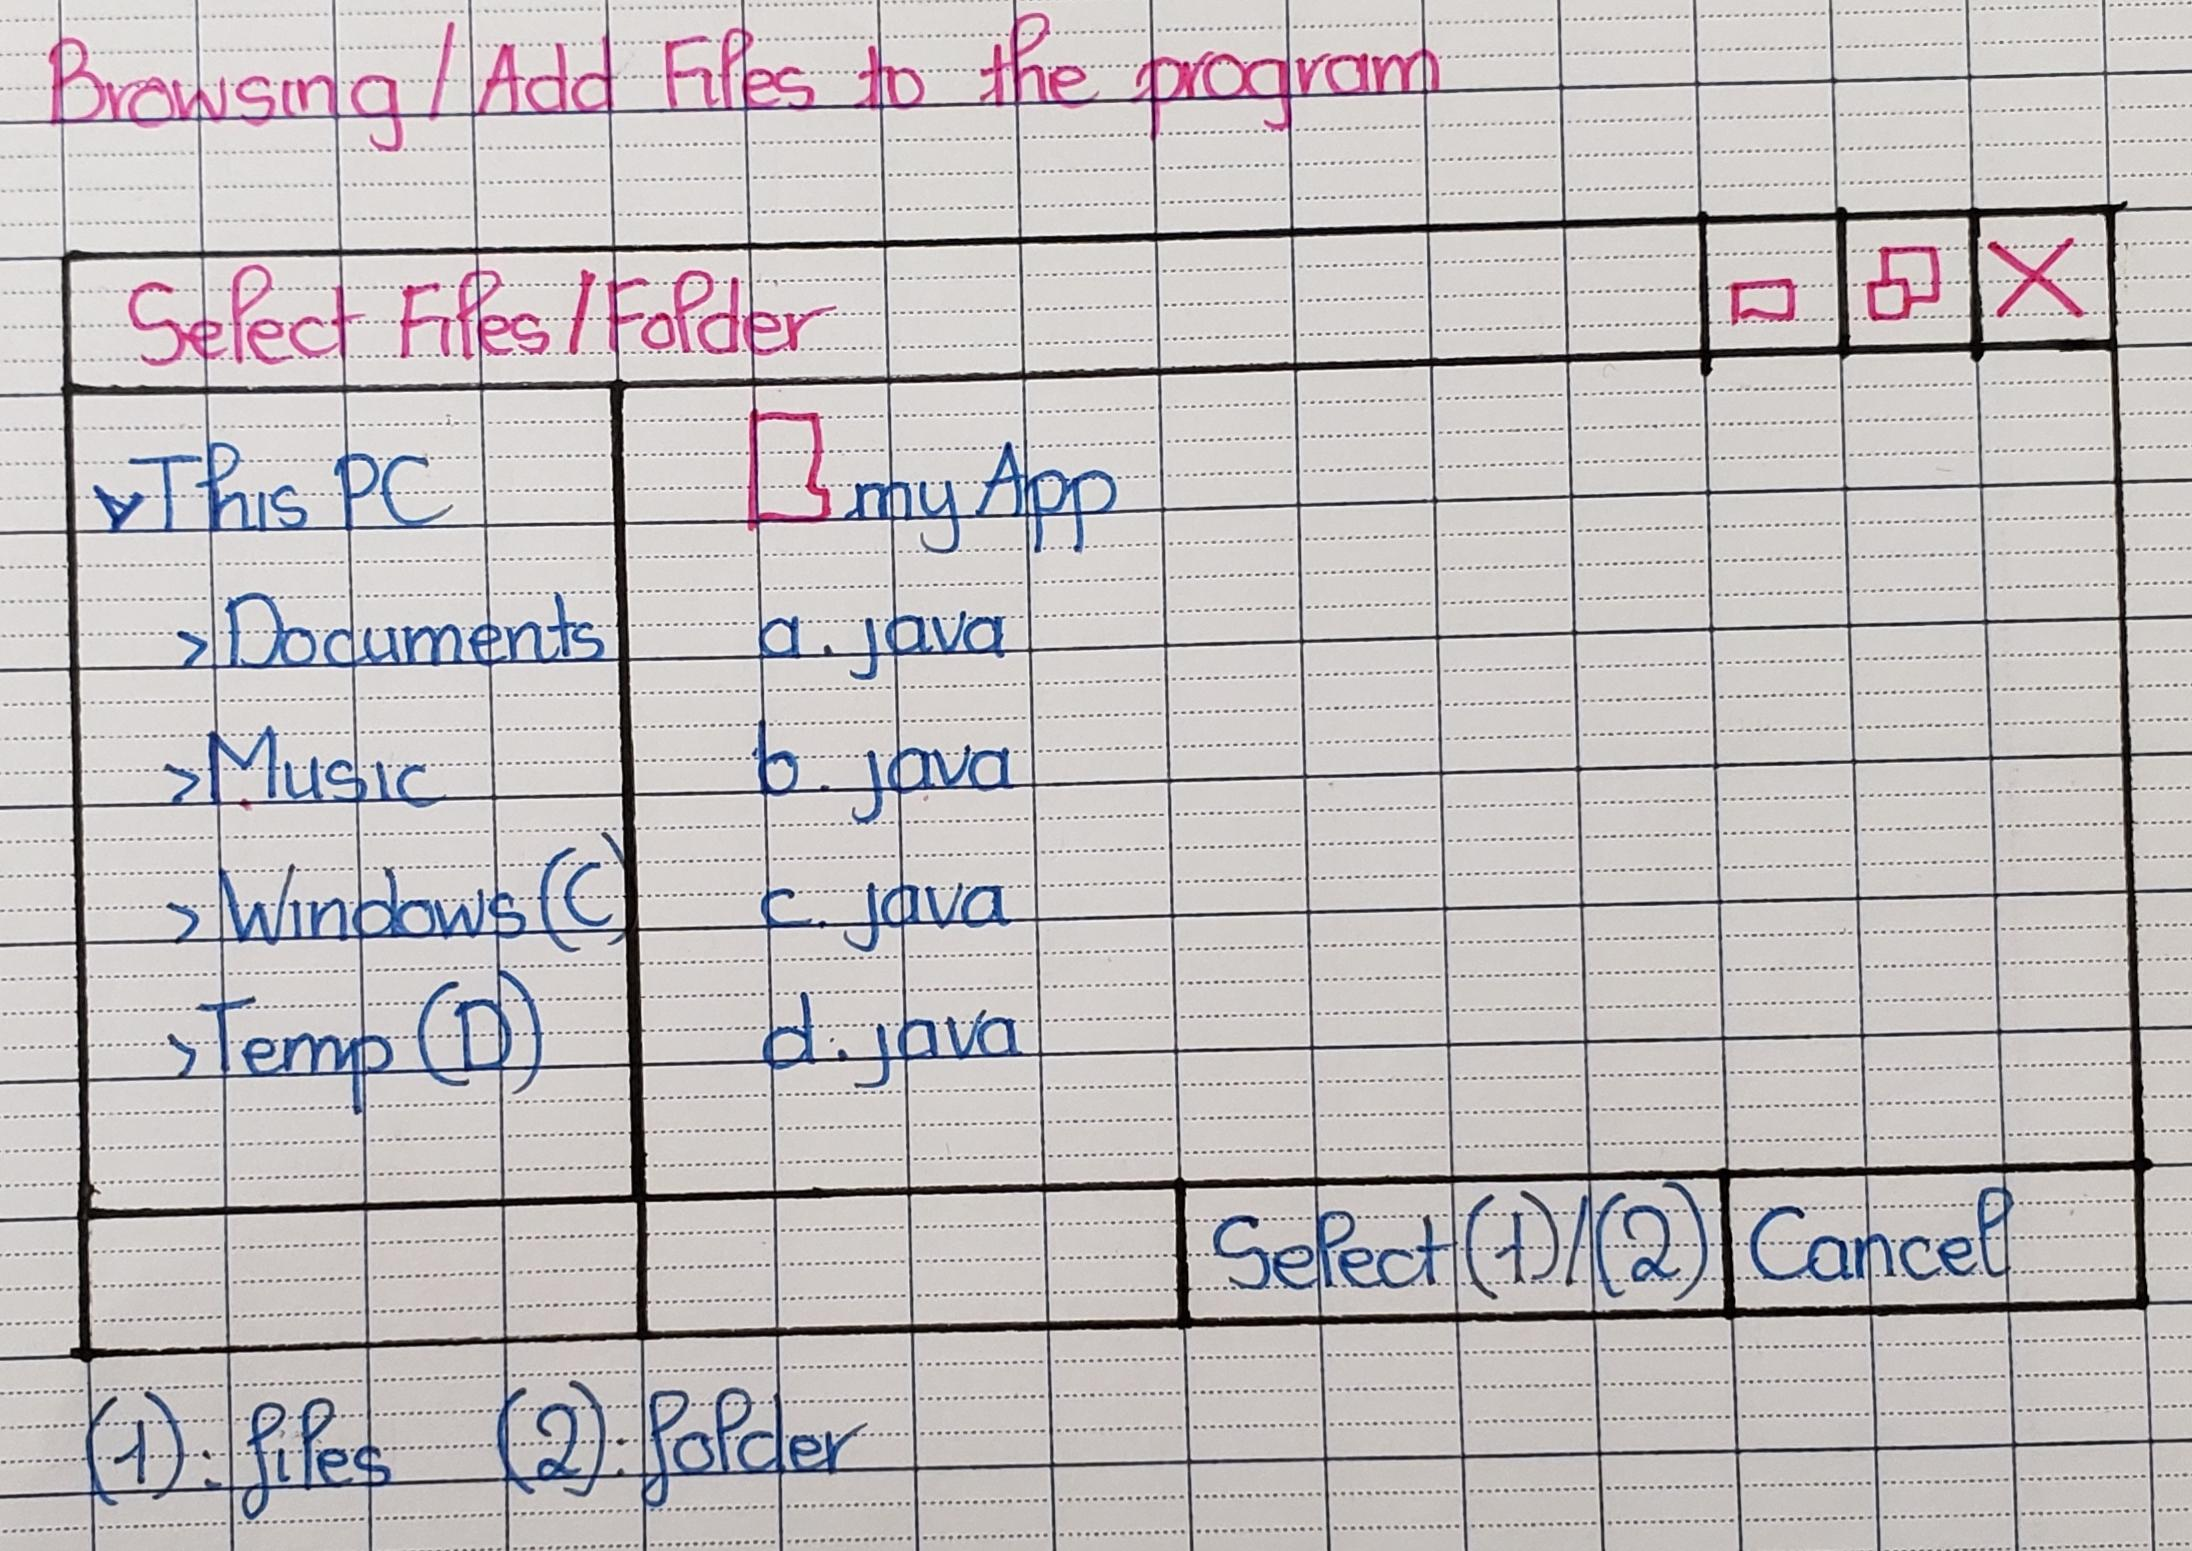 Browsing/Add Files to the program
Select Files/Folder
This PC
> Documents
> Music
> Windows (C)
> Temp (D)
my App
a. java
b. java
c. java
d. java
Select (1)/(2)
Cancel
(1): files (2): folder